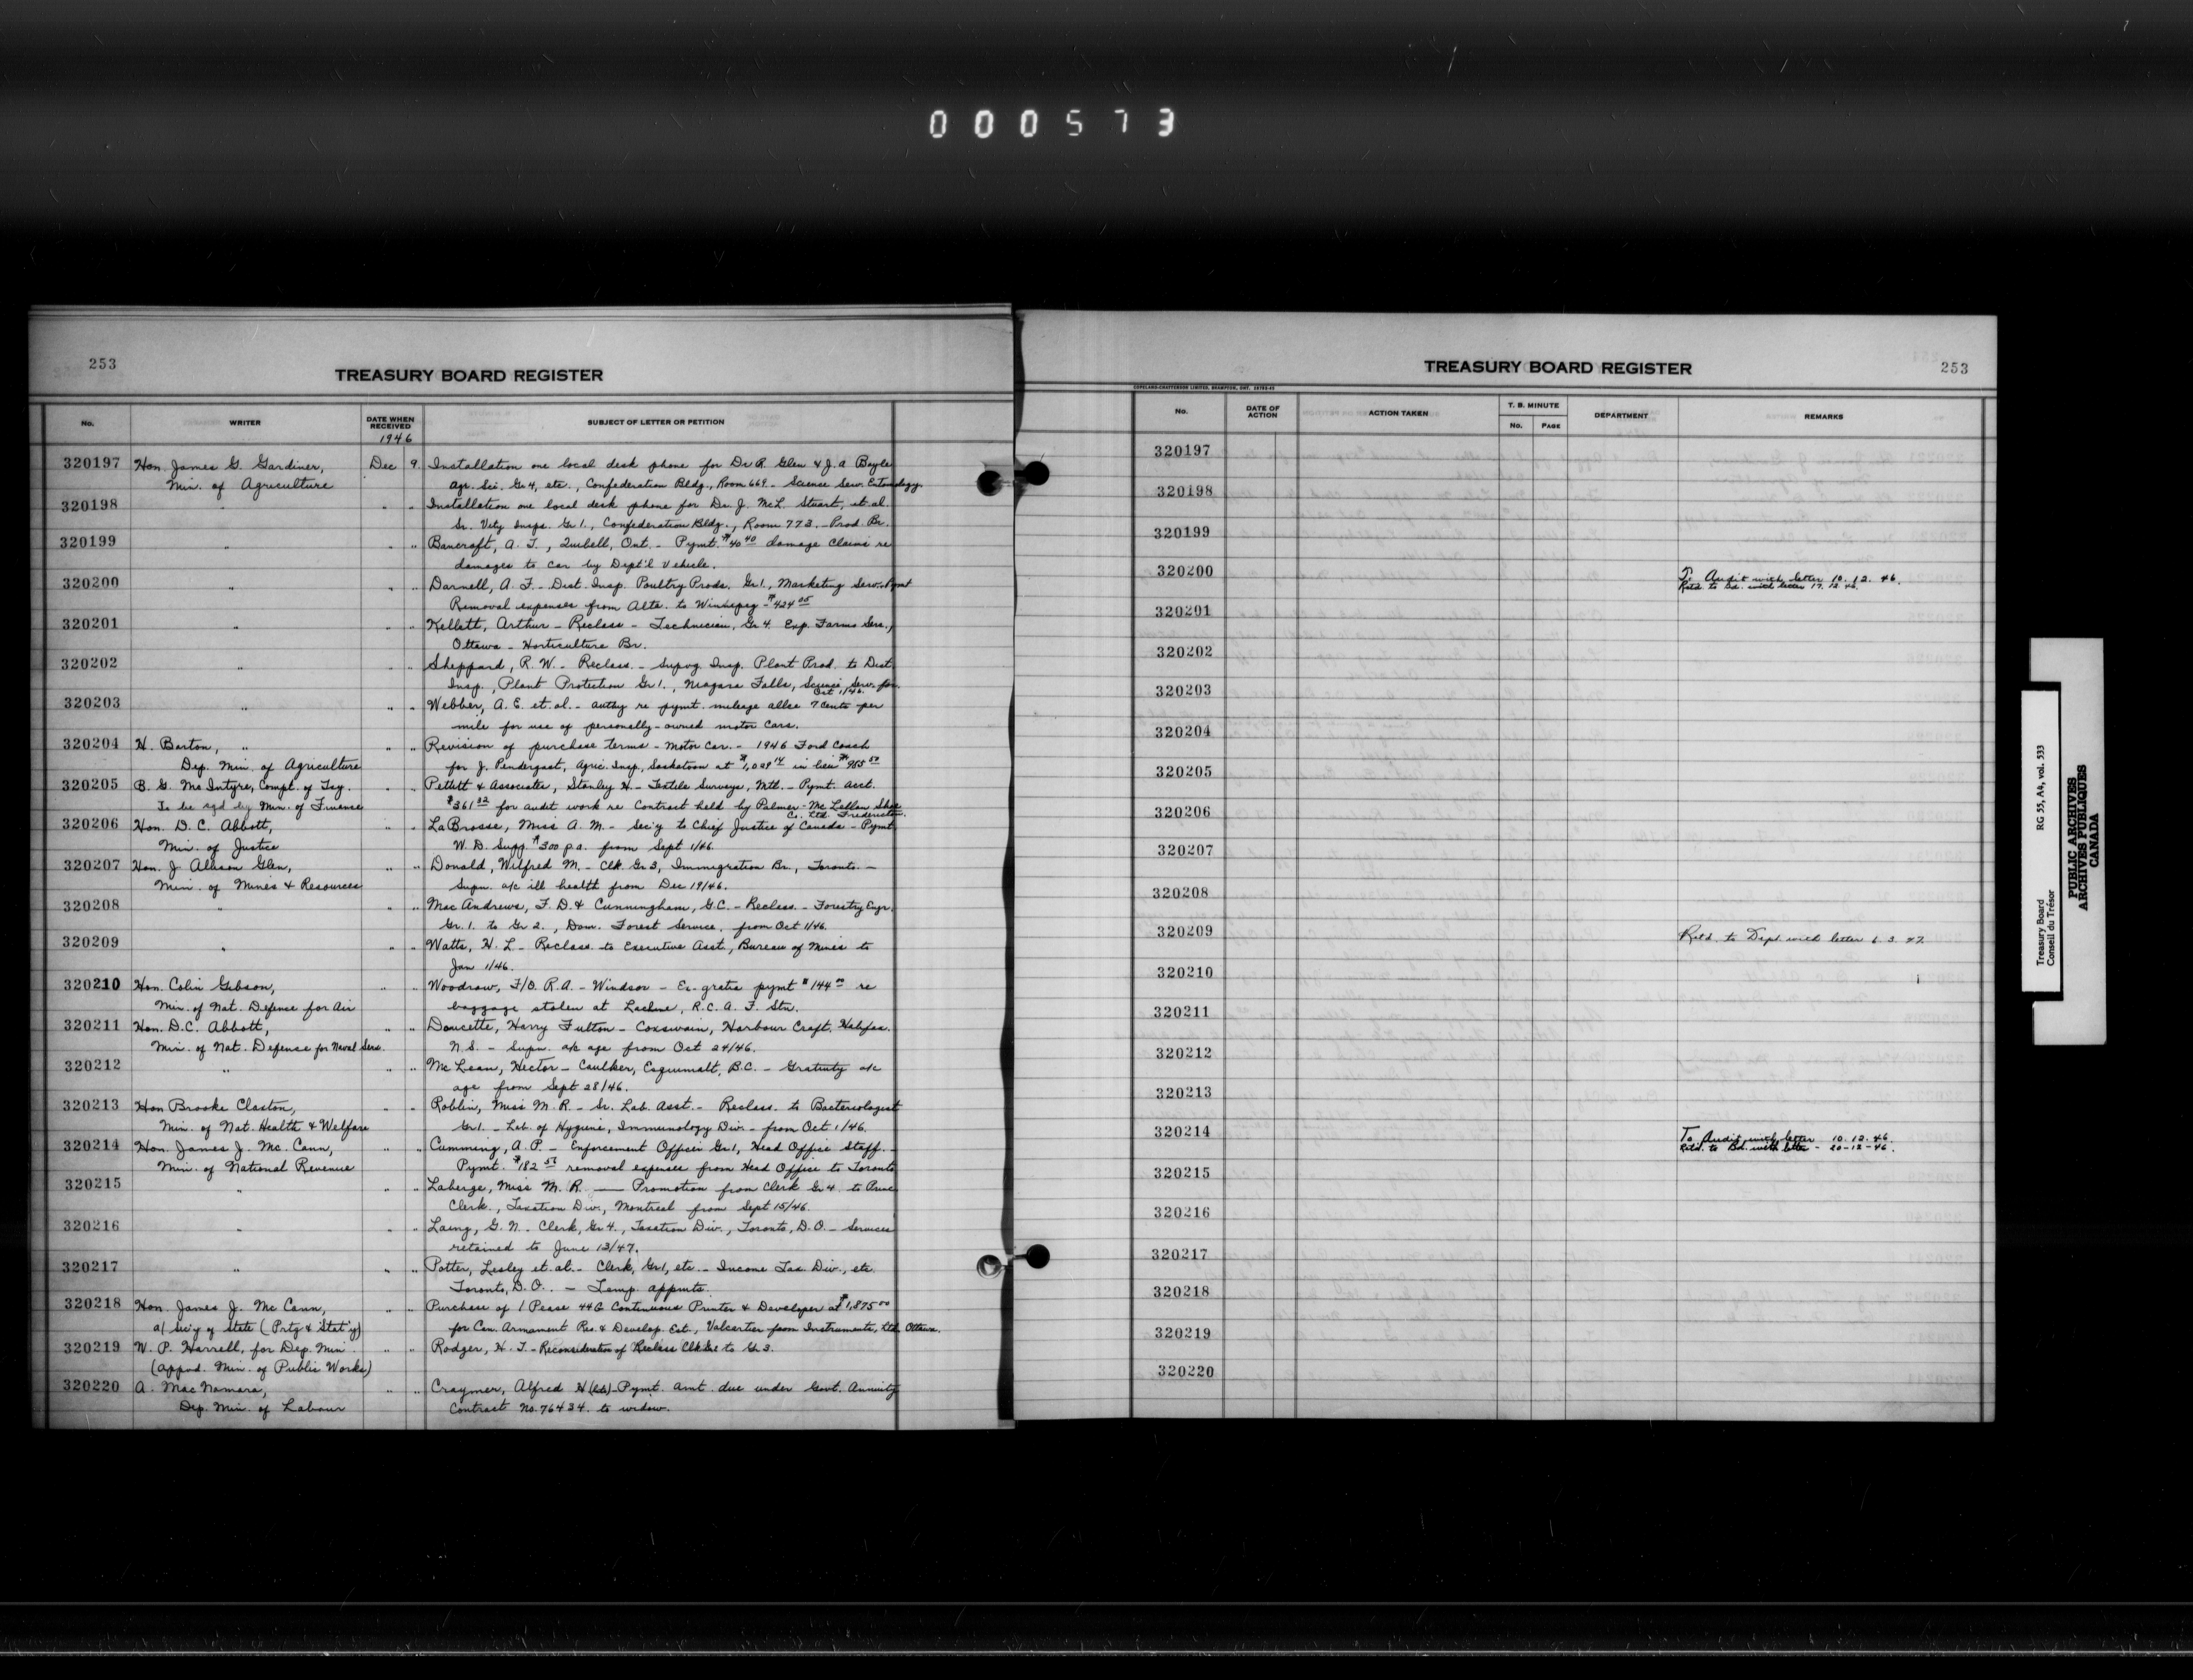 000573
253
TREASURY BOARD REGISTER
No. WRITER DATE WHEN RECEIVED SUBJECT OF LETTER OR PETITION
1946
320197 Hon. James G. Gardiner, Dec 9 Installation one local desk phone for Dr R. Glen & J. A Boyle
Min. of Agriculture Agr. Sci. Gr 4, etc., Confederation Bldg., Room 669 - Science Serv. Entomology.
320198 " " " Installation one local desk phone for Dr. J. McL. Stuart, et. al.
Sr. Vety Insps. Gr 1., Confederation Bldg., Room 773. - Prod. Br.
320199 " " " Bancroft, A. T., Quibell, Ont. - Pymt. $40 40 damage claims re
damages to car by Dept'l Vehicle.
320200 " " " Darnell, A. F. - Dist. Insp. Poultry Prods. Gr 1., Marketing Serv. - Pymt
Removal expenses from Alta. to Winnipeg - $424 05
320201 " " " Kellett, Arthur - Reclass - Technician, Gr 4. Exp. Farms Serv.,
Ottawa - Horticulture Br.
320202 " " " Sheppard, R. W. - Reclass. - Supvg. Insp. Plant Prod. to Dist.
Insp., Plant Protection Gr 1., Niagara Falls, Science Serv. from
Oct 1/46.
320203 " " " Webber, A. E. et. al. - Authy re pymt. mileage allce 7 cents per
mile for use of personally-owned motor cars.
320204 H. Barton, " " " Revision of purchase terms - Motor Car. - 1946 Ford Coach
Dep. Min. of Agriculture for J. Pendergast, Agric. Insp., Saskatoon at $1,098 14 in lieu $985 50
320205 B. G. McIntyre, Compt. of Tsy. " " Petlett & Associates, Stanley H. - Textile Surveys, Mtl. - Pymt. acct.
To be sgd by Min. of Finance $361 32 for audit work re Contract held by Palmer - McLellan Shoe
Co. Ltd. Fredericton.
320206 Hon. D. C. Abbott, " " LaBrosse, Miss A. M. - Sec'y to Chief Justice of Canada - Pymt.
Min. of Justice W. D. Supp. $300 p.a. from Sept 1/46.
320207 Hon. J. Allison Glen, " " Donald, Wilfred M. - Clk. Gr 3, Immigration Br., Toronto. -
Min. of Mines & Resources Supn. a/c ill health from Dec 19/46.
320208 " " " MacAndrews, F. D. & Cunningham, G.C. - Reclass. - Forestry Engr.
Gr. 1. to Gr 2., Dom. Forest Service, from Oct 1/46.
320209 " " " Watts, H. L - Reclass. to Executive Asst., Bureau of Mines to
Jan 1/46.
320210 Hon. Colin Gibson, " " Woodrow, F/O. R.A. - Windsor - Ex. gratia pymt $144 00 re
Min. of Nat. Defense for Air baggage stolen at Lachine, R.C.A.F. Stn.
320211 Hon. D.C. Abbott, " " Doucette, Harry Fulton - Coxswain, Harbour Craft, Halifax.
Min. of Nat. Defense for Naval Serv. N.S. - Supn. a/c age from Oct 24/46.
320212 " " " McLean, Hector - Caulker, Esquimalt, B.C. - Gratuity a/c
age from Sept 28/46.
320213 Hon Brooke Claxton, " " Roblin, Miss M. R. - Sr. Lab. Asst. - Reclass. to Bacteriologist
Min. of Nat. Health & Welfare Gr 1. - Lab. of Hygiene, Immunology Div. - from Oct 1/46.
320214 Hon. James J. McCann, " " Cumming, A. P. - Enforcement Officer Gr 1, Head Office Staff. -
Min. of National Revenue Pymt. $182 57 removal expenses from Head Office to Toronto
320215 " " " Laberge, Miss M. R. — Promotion from Clerk Gr 4. to Princ
Clerk., Taxation Div., Montreal from Sept 15/46.
320216 " " " Laing, G. N. - Clerk, Gr 4., Taxation Div., Toronto, D.O. - Services
retained to June 13/47.
320217 " " " Potter, Lesley et. al. - Clerk, Gr 1, etc. - Income Tax Div., etc.
Toronto, D.O. - Temp. appmts.
320218 Hon. James J. McCann, " " Purchase of 1 Pease 44G Continuous Printer & Developer at $1,875 00
a/ Sec'y of State (Prtg & Stat'y) for Can. Armament Res. & Develop. Est., Valcartier from Instruments, Ltd. Ottawa.
320219 W. P. Harrell, for Dep. Min. " " Rodger, H. T. - Reconsideration of Reclass Clk Gr 2 to Gr 3.
(appvd. Min. of Public Works)
320220 A. MacNamara, " " Craymer, Alfred H (late) - Pymt. amt. due under Govt. Annuity
Dep. Min. of Labour Contract No. 76434. to widow.
TREASURY BOARD REGISTER 253
COPELAND-CHATTERSON LIMITED, BRAMPTON, ONT.
No. DATE OF ACTION ACTION TAKEN T. B. MINUTE DEPARTMENT REMARKS
No. PAGE
320197
320198
320199
320200 To Audit with letter 10.12.46.
Retd. to Bd. with letter 17.12.46.
320201
320202
320203
320204
320205
320206
320207
320208
320209 Retd. to Dept. with letter 6.3.47.
320210
320211
320212
320213
320214 To Audit with letter 10-12-46.
Retd. to Bd. with letter - 20-12-46.
320215
320216
320217
320218
320219
320220
Treasury Board RG 55, A4, vol. 533
Conseil du Trésor
PUBLIC ARCHIVES
ARCHIVES PUBLIQUES
CANADA